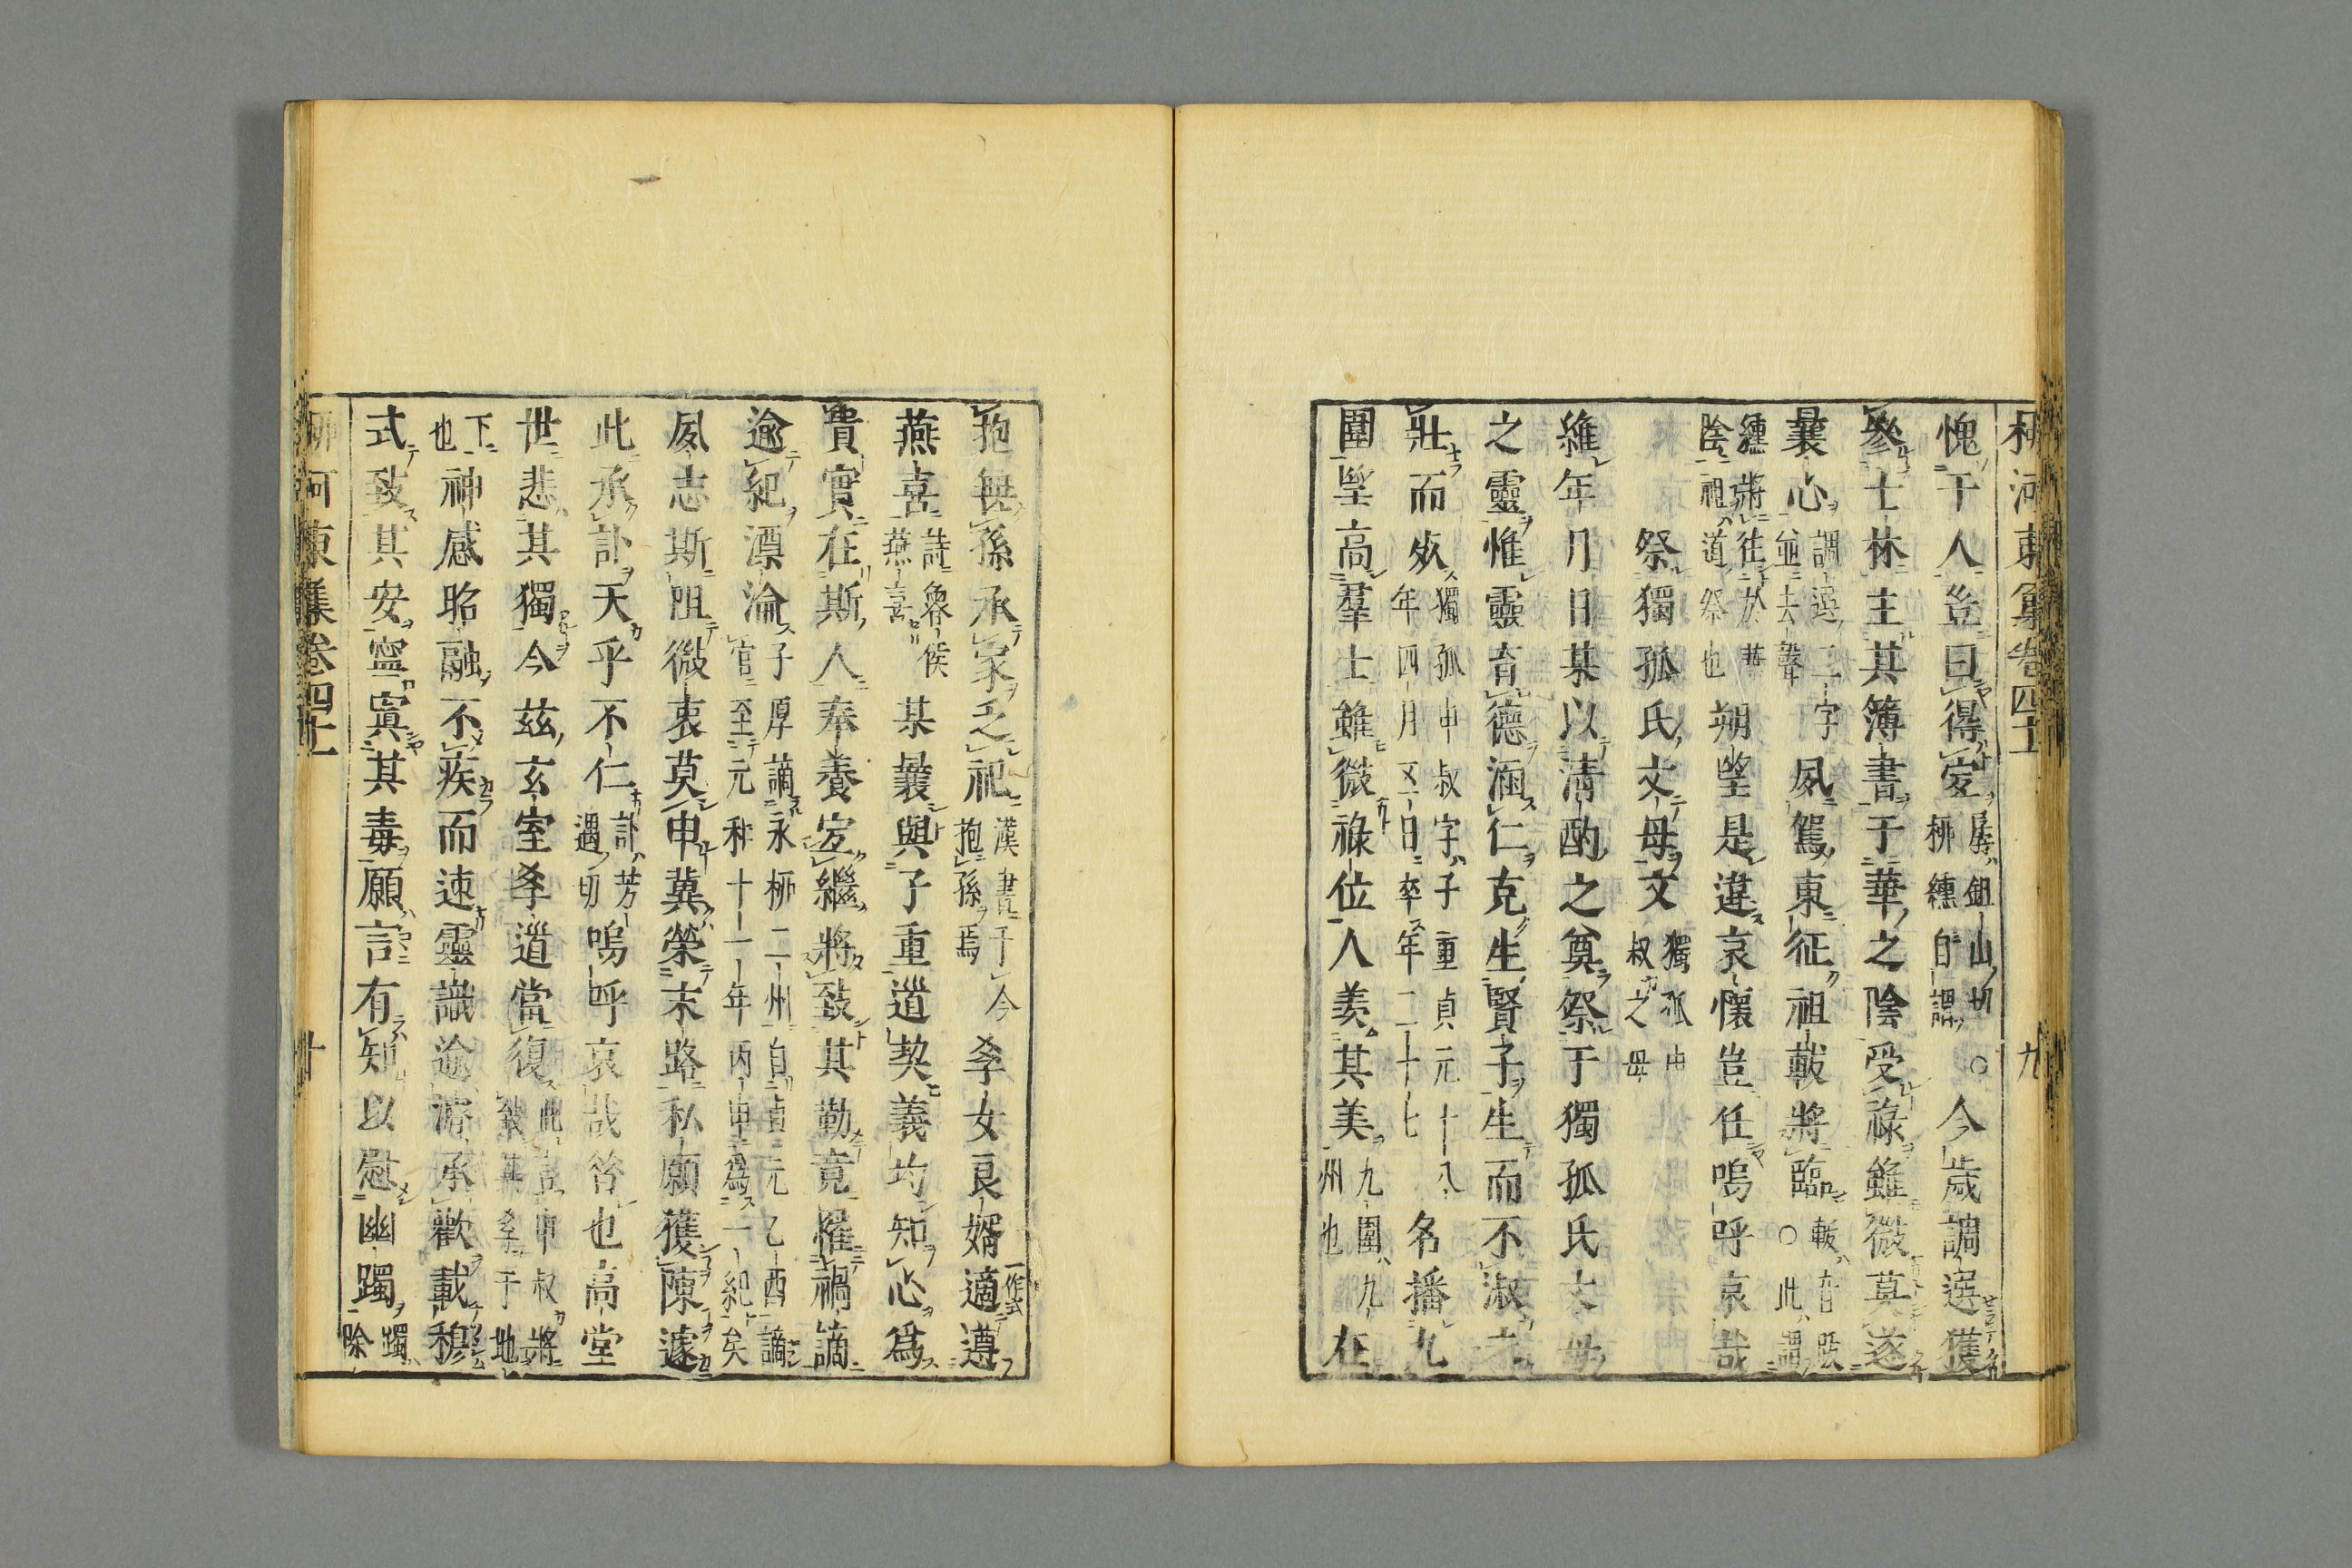 柳河東集卷四十一 九
愧于人豈曰得寔孱鉏山切柳纁自謂○今歲調選獲
參士林主其簿書于華之陰受祿雖微莫遂
曩心調選二字並去聲夙駕東征祖載將臨載音戝○此謂
纁將往於華陰祖道祭也朔望是違哀懷豈任嗚呼哀哉
祭獨孤氏丈母文獨孤申叔之母
維年月日某以清酌之奠祭于獨孤氏丈母
之靈惟靈育德涵仁克生賢子生而不淑
壯而夾獨孤申叔字子重貞元十八年四月五日卒年二十七名播九
圍望高羣士雖微祿位人羨其美九圍九州也在
抱無孫承家乏祀漢書于今抱孫焉季女良婿適一作式遵
燕喜詩魯侯燕喜某曩與子重道契義均知心爲
貴實在斯人奉養寔繼將致其勤竟罹禍謫
逾紀漂淪子厚謫永柳二州自貞元乙酉謫官至元和十一年丙申爲一紀矣
夙志斯阻微衷莫申冀榮末路私願獲陳遽
此承訃天乎不仁訃芳遇切嗚呼哀哉咎也高堂
世悲其獨今茲玄室孝道當復此豈申叔將致其孝于地
下也神感昭融不疾而速靈識逾濬承歡載穆
式致其安寧寘其毒願言有知以慰幽躅躅除
柳河東集卷四十一 十